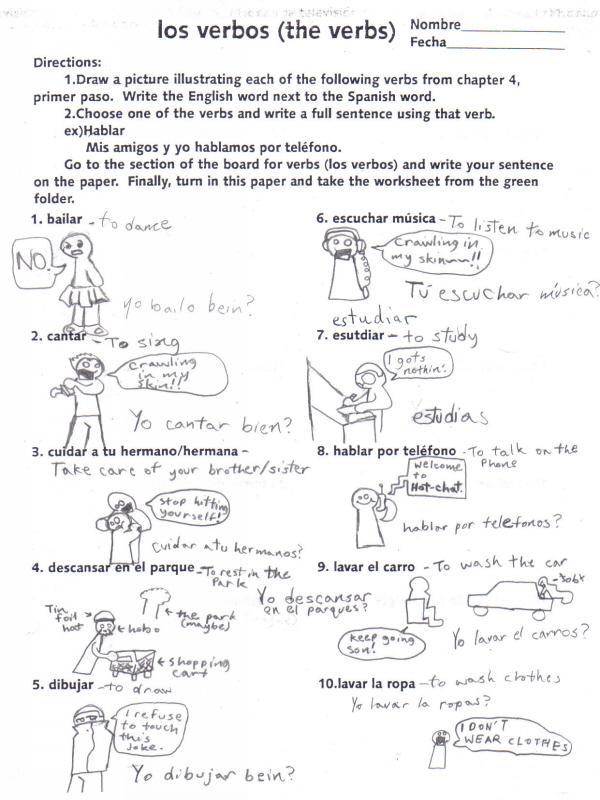 los verbos (the verbs)
Nombre
Fecha
Directions:
1.Draw a picture illustrating each of the following verbs from chapter 4,
primer paso. Write the English word next to the Spanish word.
2.Choose one of the verbs and write a full sentence using that verb.
ex)Hablar
Mis amigos y yo hablamos por teléfono.
Go to the section of the board for verbs (los verbos) and write your sentence
on the paper. Finally, turn in this paper and take the worksheet from the green
folder.
1. bailar - to dance
NO.
Yo bailo bein?
2. cantar - To sing
Crawling
in my
skin!!
Yo cantar bien?
3. cuidar a tu hermano/hermana -
Take care of your brother/sister
Stop hitting
yourself!
cuidar a tu hermanos?
4. descansar en el parque - To rest in the
Park
Yo descansar
en el parques?
Tin
foil
hat
hobo
the park
(maybe)
shopping
cart
5. dibujar - to draw
I refuse
to touch
this
joke.
Yo dibujar bein?
6. escuchar música - To listen to music
Crawling in
my skinnn!!
Tú escuchar música?
estudiar
7. esutdiar - to study
I gots
nothin'.
estudias
8. hablar por teléfono - To talk on the
Phone
Welcome
to
Hot-chat.
hablar por telefonos?
9. lavar el carro - To wash the car
keep going
son!
Yo lavar el carros?
10.lavar la ropa - to wash clothes
Yo lavar la ropas?
I DON'T
WEAR CLOTHES